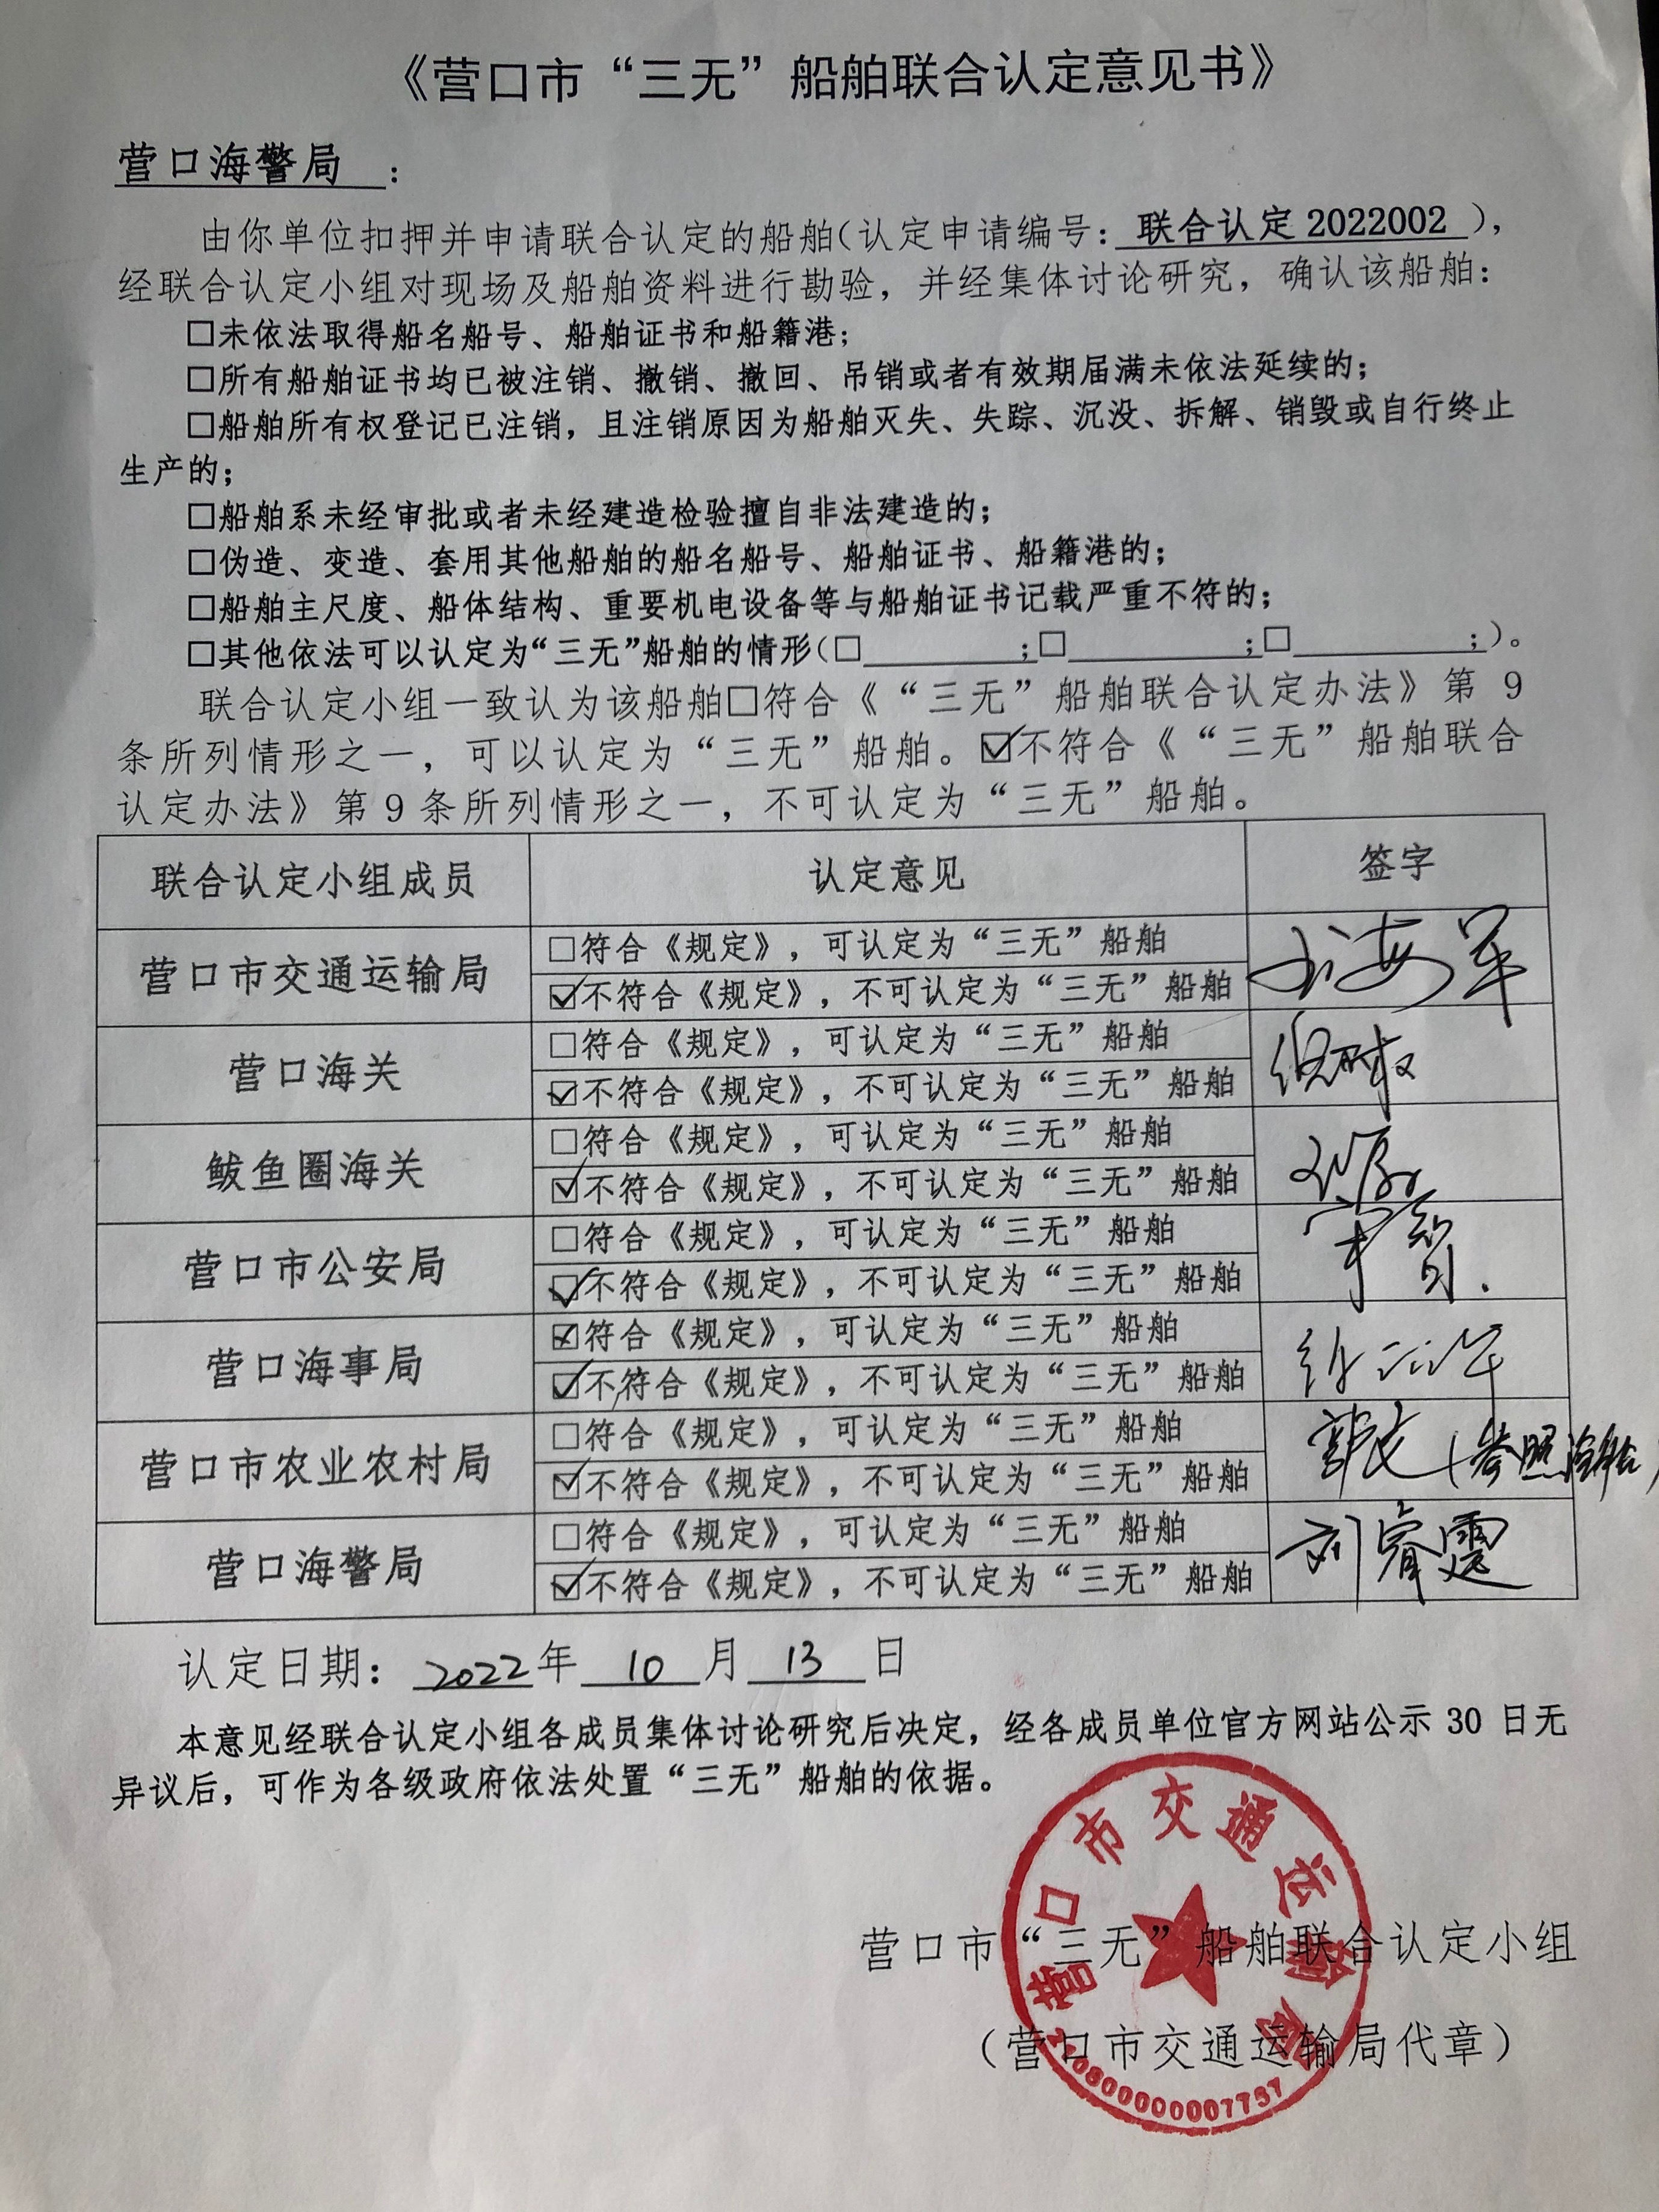 《营口市“三无”船舶联合认定意见书》
营口海警局：
由你单位扣押并申请联合认定的船舶（认定申请编号：联合认定 2022002），
经联合认定小组对现场及船舶资料进行勘验，并经集体讨论研究，确认该船舶：
□未依法取得船名船号、船舶证书和船籍港；
□所有船舶证书均已被注销、撤销、撤回、吊销或者有效期届满未依法延续的；
□船舶所有权登记已注销，且注销原因为船舶灭失、失踪、沉没、拆解、销毁或自行终止
生产的；
□船舶系未经审批或者未经建造检验擅自非法建造的；
□伪造、变造、套用其他船舶的船名船号、船舶证书、船籍港的；
□船舶主尺度、船体结构、重要机电设备等与船舶证书记载严重不符的；
□其他依法可以认定为“三无”船舶的情形（□；□；□；）。
联合认定小组一致认为该船舶□符合《“三无”船舶联合认定办法》第 9
条所列情形之一，可以认定为“三无”船舶。☑不符合《“三无”船舶联合
认定办法》第 9 条所列情形之一，不可认定为“三无”船舶。
联合认定小组成员 认定意见 签字
□符合《规定》，可认定为“三无”船舶
营口市交通运输局
☑不符合《规定》，不可认定为“三无”船舶
□符合《规定》，可认定为“三无”船舶
营口海关
☑不符合《规定》，不可认定为“三无”船舶
□符合《规定》，可认定为“三无”船舶
鲅鱼圈海关
☑不符合《规定》，不可认定为“三无”船舶
□符合《规定》，可认定为“三无”船舶
营口市公安局 宋智
☑不符合《规定》，不可认定为“三无”船舶
☑符合《规定》，可认定为“三无”船舶
营口海事局
☑不符合《规定》，不可认定为“三无”船舶
□符合《规定》，可认定为“三无”船舶
营口市农业农村局
☑不符合《规定》，不可认定为“三无”船舶
□符合《规定》，可认定为“三无”船舶
营口海警局 刘睿霆
☑不符合《规定》，不可认定为“三无”船舶
认定日期：2022年 10 月 13 日
本意见经联合认定小组各成员集体讨论研究后决定，经各成员单位官方网站公示 30 日无
异议后，可作为各级政府依法处置“三无”船舶的依据。
营口市“三无”船舶联合认定小组
（营口市交通运输局代章）
营口市交通运输局